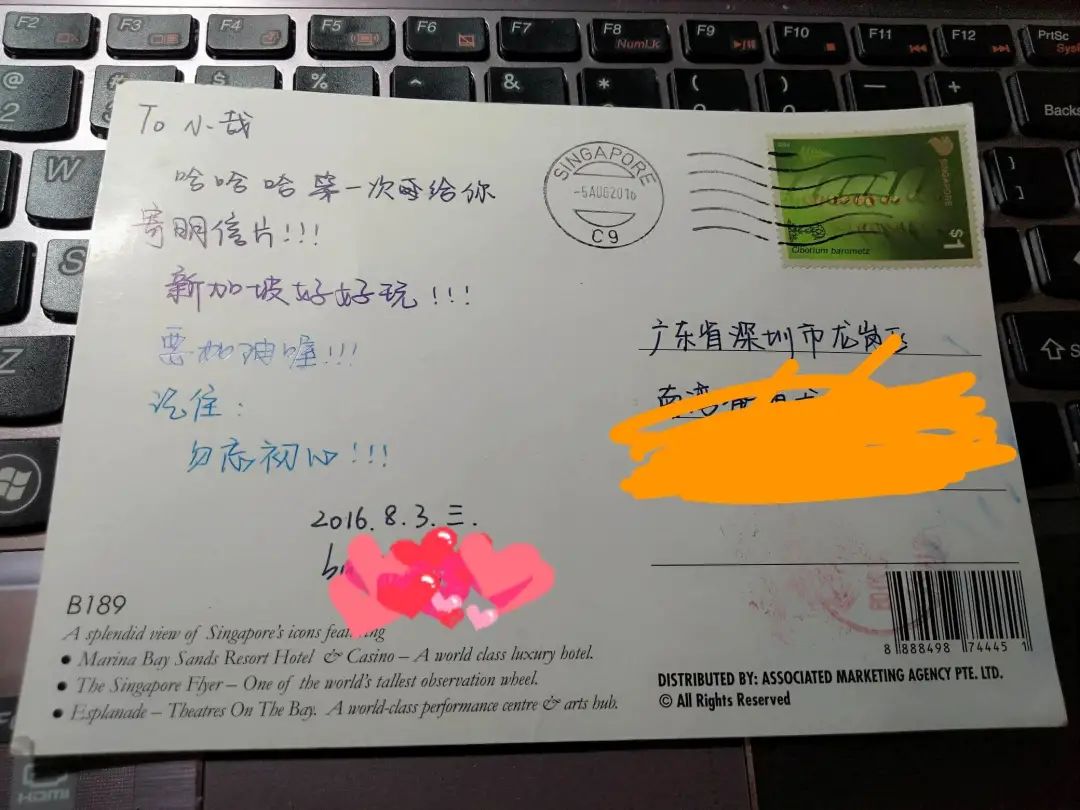 To 小哉
哈哈哈 第一次 给你
寄明信片!!!
新加坡好好玩!!!
要加油喔!!!
记住:
勿忘初心!!!
2016.8.3.三.
SINGAPORE
-5AUG2016
C9
SINGAPORE
$1
Ciborium barometz
广东省深圳市龙岗区
南湾
B189
A splendid view of Singapore's icons featuring
• Marina Bay Sands Resort Hotel & Casino – A world class luxury hotel.
• The Singapore Flyer – One of the world's tallest observation wheel.
• Esplanade – Theatres On The Bay. A world-class performance centre & arts hub.
8 888498 744451
DISTRIBUTED BY: ASSOCIATED MARKETING AGENCY PTE. LTD.
© All Rights Reserved
F2
F3
F4
F5
F6
F7
F8
NumLk
F9
F10
F11
F12
PrtSc
Backs
@
2
#
$
%
^
&
*
(
)
—
+
W
S
Z
S
F
HDMI